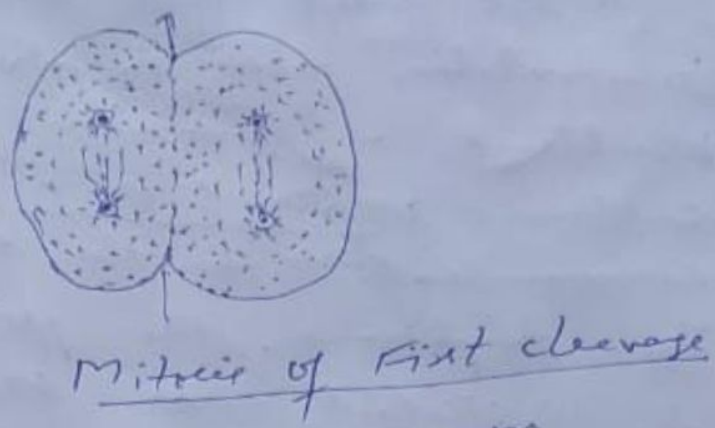 Mitosis of First cleavage